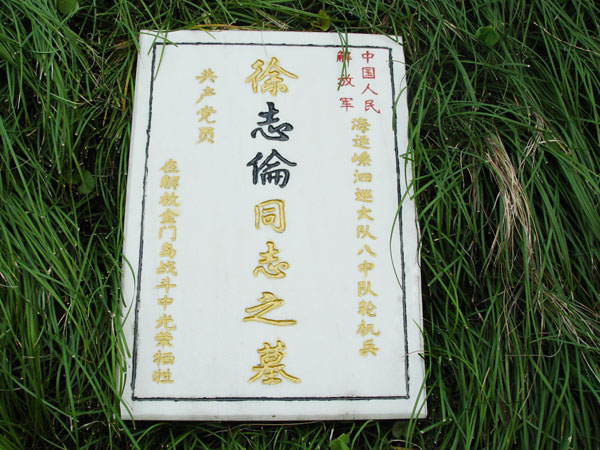 中国人民
解放军
海运嵊泗巡大队八中队轮机兵
徐志倫同志之墓
共产党员
在解放金门岛战斗中光荣牺牲